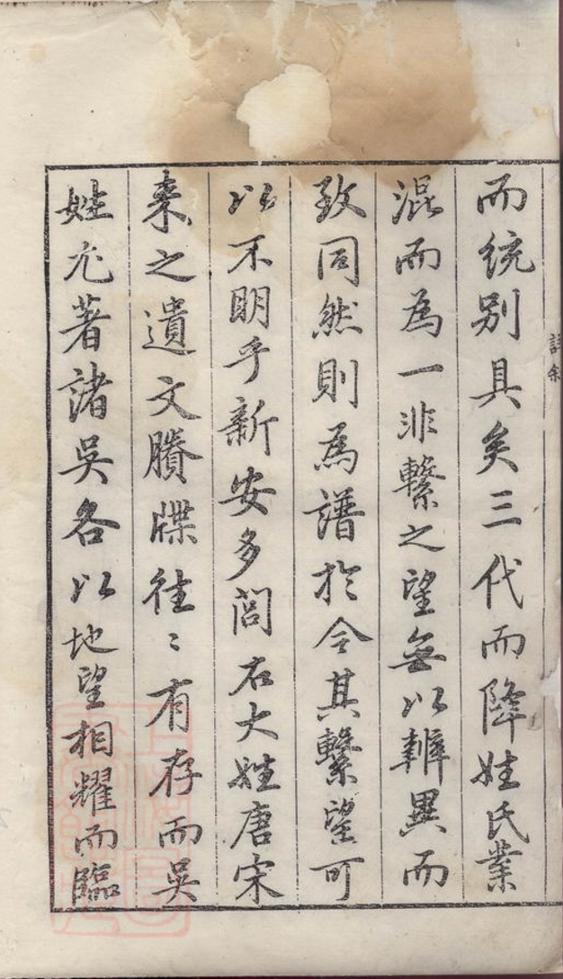 而統别具矣三代而降姓氏業
混而為一非繫之望無以辨異而
致同然則為譜於今其繫望可
以不明乎新安多閥右大姓唐宋
来之遺文賸牒往〻有存而吳
姓尤著諸吳各以地望相耀而臨